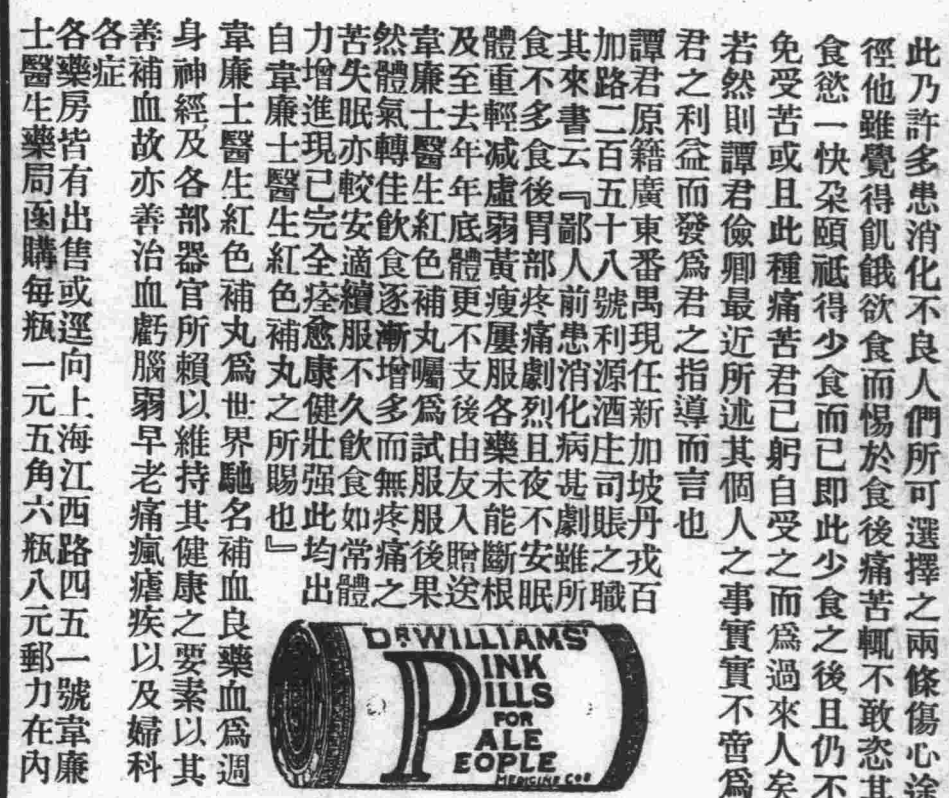 此乃許多患消化不良人們所可選擇之兩條傷心途
徑他雖覺得飢餓欲食而惕於食後痛苦輒不敢恣其
食慾一快朶頤祗得少食而已即此少食之後且仍不
免受苦或且此種痛苦君已躬自受之而爲過來人矣
若然則譚君儉卿最近所述其個人之事實實不啻爲
君之利益而發爲君之指導而言也
譚君原籍廣東番禺現任新加坡丹戎百
加路二百五十八號利源酒庄司賬之職
其來書云『鄙人前患消化病甚劇雖所
食不多食後胃部疼痛劇烈且夜不安眠
體重輕减虛弱黃瘦屢服各藥未能斷根
及至去年年底體更不支後由友人贈送
韋廉士醫生紅色補丸囑爲試服服後果
然體氣轉佳飲食逐漸增多而無疼痛之
苦失眠亦較安適續服不久飲食如常體
力增進現已完全痊愈康健壯强此均出
自韋廉士醫生紅色補丸之所賜也』
韋廉士醫生紅色補丸爲世界馳名補血良藥血爲週
身神經及各部器官所賴以維持其健康之要素以其
善補血故亦善治血虧腦弱早老痛瘋瘧疾以及婦科
各症
各藥房皆有出售或逕向上海江西路四五一號韋廉
士醫生藥局函購每瓶一元五角六瓶八元郵力在內
DR WILLIAMS'
PINK
PILLS
FOR
PALE
PEOPLE
MEDICINE Coo